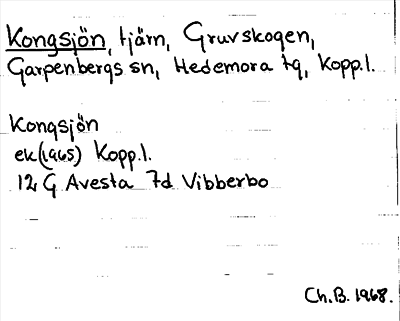 Kongsjön, tjärn, Gruvskogen,
Garpenbergs sn, Hedemora tg, Kopp.l.
Kongsjön
ek(1965) Kopp.l.
12 G Avesta 7d Vibberbo
Ch.B. 1968.